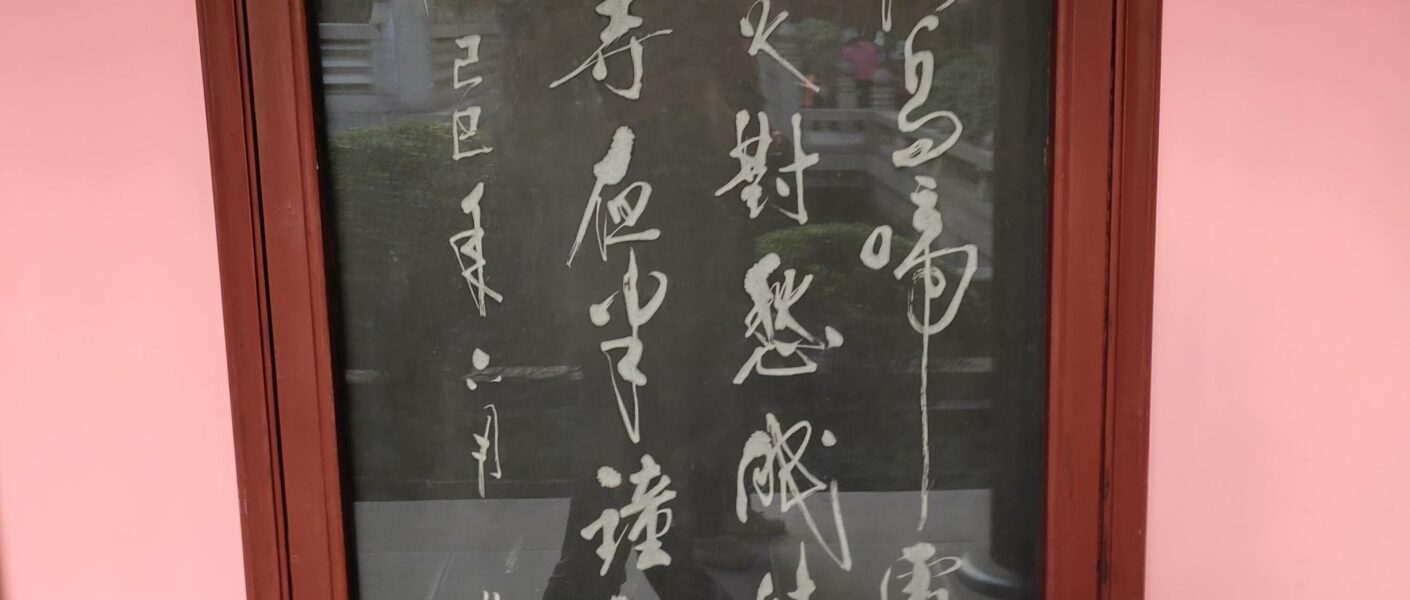 烏啼
火對愁眠
寺夜半鐘
己巳年六月